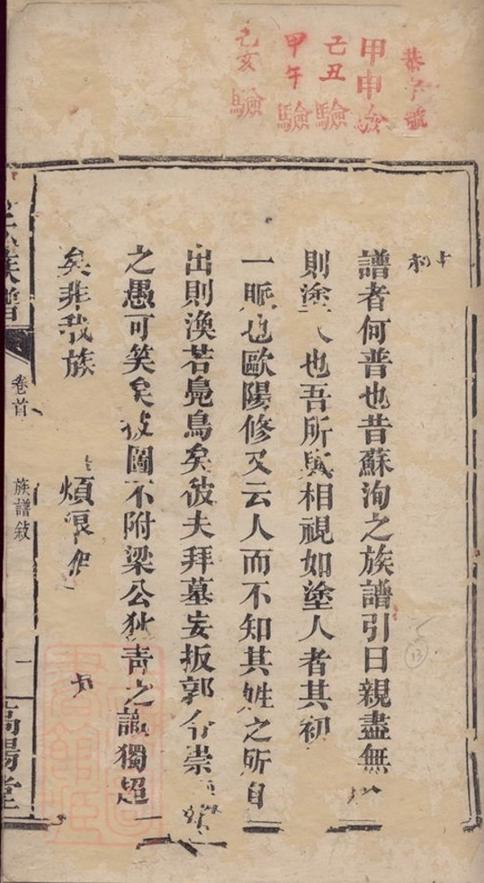 恭字號
甲申驗
己丑驗
甲午驗
乙亥驗
譜者何普也昔蘇洵之族譜引曰親盡無
則塗人也吾所與相視如塗人者其初
一脈也歐陽修又云人而不知其姓之所自
出則渙若鳧鳥矣彼夫拜墓妄扳郭令崇
之愚可笑矣披圖不附梁公狄青之識獨超
矣非我族
煩
族譜
卷首
族譜敘
一
高陽堂